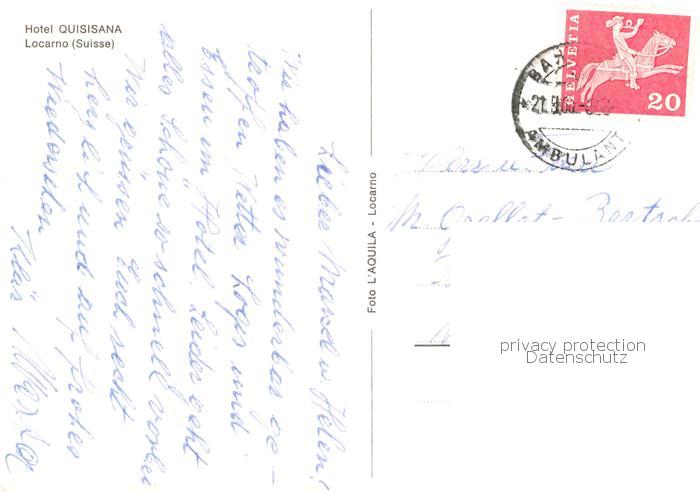 Hotel QUISISANA
Locarno (Suisse)
Lieber Marcel u. Helen!
Wir haben es wunderbar ge-
troffen Wetter Logis und
Essen im Hotel. Leider geht
alles Schöne so schnell vorbei
Wir grüssen Euch recht
herzlich und auf frohes
Wiedersehen
Foto L'AQUILA - Locarno
HELVETIA
20
AMBULANT
Herr u.
M.
privacy protection
Datenschutz